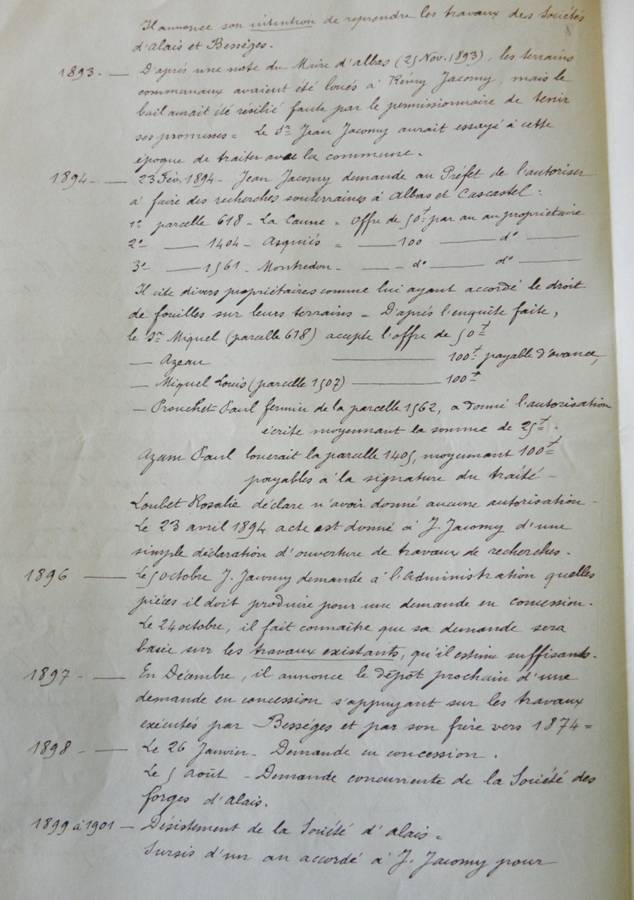 Il annonce son intention de reprendre les travaux des Sociétés
d'Alais et Bessèges.
1893. — D'après une note du Maire d'Albas (25 Nov. 1893), les terrains
communaux avaient été loués à Rémy Jacomy, mais le
bail aurait été résilié faute par le permissionnaire de tenir
ses promesses = Le Sr Jean Jacomy aurait essayé à cette
époque de traiter avec la commune.
1894 — 23 Fév. 1894 - Jean Jacomy demande au Préfet de l'autoriser
à faire des recherches souterraines à Albas et Cascastel :
1° parcelle 618 - La Caune = Offre de 50f par an au propriétaire
2° — 1404 - Asquiés = — 100 — d° —
3° — 1561 - Montredon - — d° — d° —
Il cite divers propriétaires comme lui ayant accordé le droit
de fouilles sur leurs terrains = D'après l'enquête faite,
le Sr Miquel (parcelle 618) accepte l'offre de 50f
— Azeau — 100f payable d'avance,
— Miquel Louis (parcelle 1507) — 100f
— Prouchet Paul fermier de la parcelle 1562, a donné l'autorisation
écrite moyennant la somme de 25f.
Azam Paul louerait la parcelle 1405, moyennant 100f
payables à la signature du traité -
Loubet Rosalie déclare n'avoir donné aucune autorisation -
Le 23 avril 1894 acte est donné à J. Jacomy d'une
simple déclaration d'ouverture de travaux de recherches.
1896 — Le 5 octobre J. Jacomy demande à l'Administration quelles
pièces il doit produire pour une demande en concession.
Le 24 octobre, il fait connaître que sa demande sera
basée sur les travaux existants, qu'il estime suffisants.
1897 - — En Décembre, il annonce le dépôt prochain d'une
demande en concession s'appuyant sur les travaux
exécutés par Bességes et par son frère vers 1874 =
1898 — Le 26 Janvier - Demande en concession.
Le 5 Août - Demande concurrente de la Société des
forges d'Alais.
1899 à 1901 — Désistement de la Société d'Alais =
Sursis d'un an accordé à J. Jacomy pour